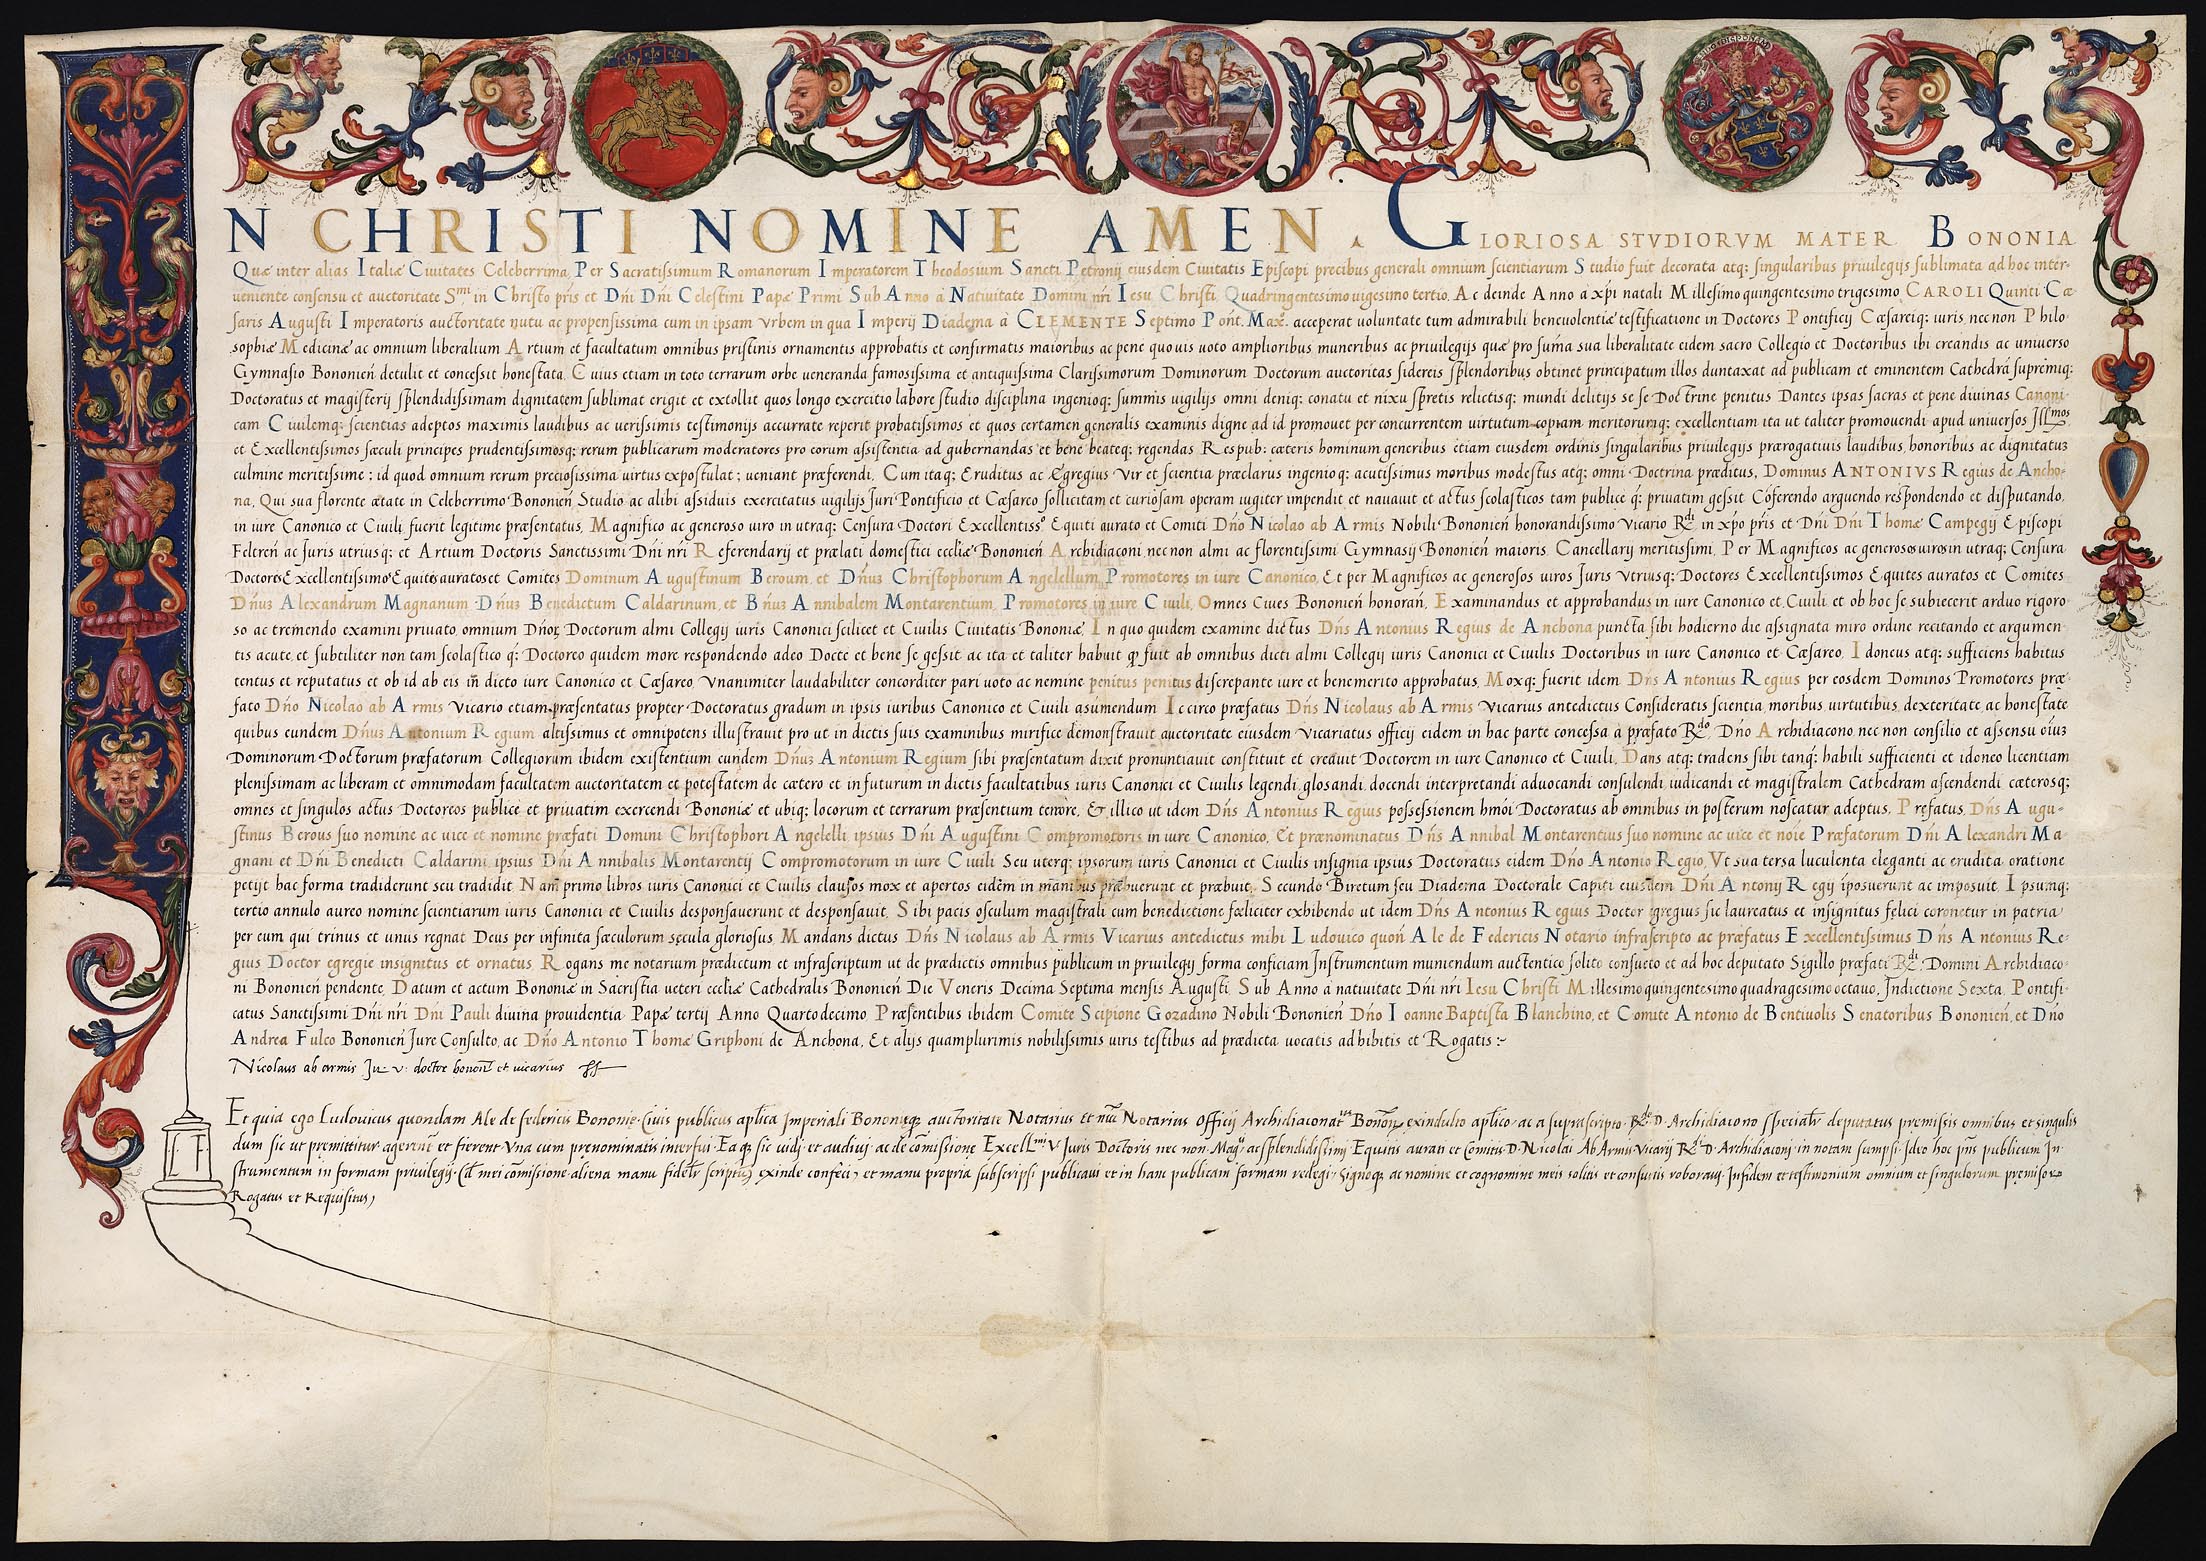 IN CHRISTI NOMINE AMEN. GLORIOSA STVDIORVM MATER BONONIA
Quæ inter alias Italiæ Ciuitates Celeberrima, Per Sacratissimum Romanorum Imperatorem Theodosium Sancti Petronij eiusdem Ciuitatis Episcopi precibus generali omnium scientiarum Studio fuit decorata atq; singularibus priuilegijs sublimata ad hoc inter-
ueniente consensu et auctoritate Smi in Christo pris et Dni Dni Celestini Papæ Primi Sub Anno à Natiuitate Domini nri Iesu Christi Quadringentesimo uigesimo tertio. Ac deinde Anno a xpi natali Millesimo quingentesimo trigesimo CAROLI Quinti Cæ
saris Augusti Imperatoris auctoritate nutu ac propensissima cum in ipsam vrbem in qua Imperij Diadema à CLEMENTE Septimo Pont. Max. acceperat uoluntate tum admirabili beneuolentiæ testificatione in Doctores Pontificij Cæsareiq; iuris, nec non Philo-
sophiæ Medicinæ ac omnium liberalium Artium et facultatum omnibus pristinis ornamentis approbatis et confirmatis maioribus ac pene quouis uoto amplioribus muneribus ac priuilegijs quæ pro suma sua liberalitate eidem sacro Collegio et Doctoribus ibi creandis ac uniuerso
Gymnasio Bononień detulit et concessit honestata. Cuius etiam in toto terrarum orbe ueneranda famosissima et antiquissima Clarissimorum Dominorum Doctorum auctoritas sidereis splendoribus obtinet principatum illos duntaxat ad publicam et eminentem Cathedrā supremiq;
Doctoratus et magisterij splendidissimam dignitatem sublimat erigit et extollit quos longo exercitio labore studio disciplina ingenioq; summis uigilijs omni deniq; conatu et nixu spretis relictisq; mundi delitijs se se Doctrine penitus Dantes ipsas sacras et pene diuinas Canoni-
cam Ciuilemq; scientias adeptos maximis laudibus ac uerissimis testimonijs accurrate reperit probatissimos et quos certamen generalis examinis digne ad id promouet per concurrentem uirtutum copiam meritorumq; excellentiam ita ut taliter promouendi apud uniuersos Illmos
et Excellentissimos sæculi principes prudentissimosq; rerum publicarum moderatores pro eorum assistentia ad gubernandas et bene beateq; regendas Respub: cæteris hominum generibus etiam eiusdem ordinis singularibus priuilegijs prærogatiuis laudibus, honoribus ac dignitatuȝ
culmine meritissime: id quod omnium rerum preciosissima uirtus expostulat; ueniant præferendi. Cum itaq; Eruditus ac Egregius Vir et scientia præclarus ingenioq; acutissimus moribus modestus atq; omni Doctrina præditus, Dominus ANTONIVS Regius de Ancho-
na, Qui sua florente ætate in Celeberrimo Bononień Studio ac alibi assiduis exercitatus uigilijs Juri Pontificio et Cæsareo sollicitam et curiosam operam iugiter impendit et nauauit et actus scolasticos tam publice q; priuatim gessit Cōferendo arguendo respondendo et disputando,
in iure Canonico et Ciuili, fuerit legitime præsentatus, Magnifico ac generoso uiro in utraq; Censura Doctori Excellentisso Equiti aurato et Comiti Dño Nicolao ab Armis Nobili Bononień honorandissimo Vicario Rdi in xpo pris et Dni Dni Thomæ Campegij Episcopi
Feltreń ac Juris utriusq; et Artium Doctoris Sanctissimi Dni nri Referendarij et prælati domestici eccliæ Bononień Archidiaconi, nec non almi ac florentissimi Gymnasij Bononień maioris Cancellarij meritissimi, Per Magnificos ac generosos uiros in utraq; Censura
Doctores Excellentissimos Equites auratos et Comites Dominum Augustinum Beroum, et Dñuȝ Christophorum Angelellum Promotores in iure Canonico, Et per Magnificos ac generosos uiros Juris Vtriusq; Doctores Excellentissimos Equites auratos et Comites
Dñuȝ Alexandrum Magnanum Dñuȝ Benedictum Caldarinum, et Dñuȝ Annibalem Montarentium, Promotores in iure Ciuili, Omnes Ciues Bononień honorań, Examinandus et approbandus in iure Canonico et Ciuili et ob hoc se subiecerit arduo rigoro-
so ac tremendo examini priuato, omnium Dñoꝝ Doctorum almi Collegij iuris Canonici scilicet et Ciuilis Ciuitatis Bononiæ, In quo quidem examine dictus Dñs Antonius Regius de Anchona puncta sibi hodierno die assignata miro ordine recitando et argumen-
tis acute, et subtiliter non tam scolastico q; Doctoreo quidem more respondendo adeo Docte et bene se gessit ac ita et taliter habuit qp fuit ab omnibus dicti almi Collegij iuris Canonici et Ciuilis Doctoribus in iure Canonico et Cæsareo, Idoneus atq; sufficiens habitus
tentus et reputatus et ob id ab eis iñ dicto iure Canonico et Cæsareo, Vnanimiter laudabiliter concorditer pari uoto ac nemine penitus penitus discrepante iure et benemerito approbatus, Moxq; fuerit idem Dñs Antonius Regius per eosdem Dominos Promotores præ-
fato Dño Nicolao ab Armis Vicario etiam præsentatus propter Doctoratus gradum in ipsis iuribus Canonico et Ciuili asūmendum Iccirco præfatus Dñs Nicolaus ab Armis Vicarius antedictus Consideratis scientia, moribus, uirtutibus, dexteritate, ac honestate
quibus eundem Dñuȝ Antonium Regium altissimus et omnipotens illustrauit pro ut in dictis suis examinibus mirifice demonstrauit auctoritate eiusdem Vicariatus officij eidem in hac parte concessa à præfato Rdo Dño Archidiacono nec non consilio et assensu oīuȝ
Dominorum Doctorum præfatorum Collegiorum ibidem existentium eundem Dñuȝ Antonium Regium sibi præsentatum dixit pronuntiauit constituit et creauit Doctorem in iure Canonico et Ciuili, Dans atq; tradens sibi tanq; habili sufficienti et idoneo licentiam
plenissimam ac liberam et omnimodam facultatem auctoritatem et potestatem de cætero et in futurum in dictis facultatibus iuris Canonici et Ciuilis legendi, glosandi, docendi interpretandi aduocandi consulendi iudicandi et magistralem Cathedram ascendendi cæterosq;
omnes et singulos actus Doctoreos publice et priuatim exercendi Bononiæ et ubiq; locorum et terrarum præsentium tenore, & illico ut idem Dñs Antonius Regius possessionem hmōi Doctoratus ab omnibus in posterum noscatur adeptus, Prefatus Dñs Augu-
stinus Berous suo nomine ac uice et nomine præfati Domini Christophori Angelelli ipsius Dñi Augustini Compromotoris in iure Canonico, Et prænominatus Dñs Annibal Montarentius suo nomine ac uice et noīe Præfatorum Dñi Alexandri Ma
gnani et Dñi Benedicti Caldarini ipsius Dñi Annibalis Montarentij Compromotorum in iure Ciuili Seu uterq; ipsorum iuris Canonici et Ciuilis insignia ipsius Doctoratus eidem Dño Antonio Regio, Vt sua tersa luculenta eleganti ac erudita oratione
petijt hac forma tradiderunt seu tradidit Nam primo libros iuris Canonici et Ciuilis clausos mox et apertos eidēm in manibus præbuerunt et præbuit, Secundo Biretum seu Diadema Doctorale Capiti eiusdem Dñi Antonij Regij iposuerunt ac imposuit, Ipsumq;
tertio annulo aureo nomine scientiarum iuris Canonici et Ciuilis desponsauerunt et desponsauit, Sibi pacis osculum magistrali cum benedictione fæliciter exhibendo ut idem Dñs Antonius Regius Doctor egregius sic laureatus et insignitus felici coronetur in patria
per eum qui trinus et unus regnat Deus per infinita sæculorum secula gloriosus, Mandans dictus Dñs Nicolaus ab Armis Vicarius antedictus mihi Ludouico quoń Ale de Federicis Notario infrascripto ac præfatus Excellentissimus Dñs Antonius Re-
gius Doctor egregie insignitus et ornatus, Rogans me notarium prædictum et infrascriptum ut de prædictis omnibus publicum in priuilegij forma conficiam Instrumentum muniendum auctentico solito consueto et ad hoc deputato Sigillo præfati Rdi Domini Archidiaco-
ni Bononień pendente, Datum et actum Bononiæ in Sacristia ueteri eccliæ Cathedralis Bononień Die Veneris Decima Septima mensis Augusti Sub Anno à natiuitate Dñi nri Iesu Christi Millesimo quingentesimo quadragesimo octauo, Indictione Sexta, Pontifi-
catus Sanctissimi Dñi nri Dñi Pauli diuina prouidentia Papæ tertij Anno Quartodecimo, Præsentibus ibidem Comite Scipione Gozadino Nobili Bononień Dño Ioanne Baptista Blanchino, et Comite Antonio de Bentiuolis Senatoribus Bononień, et Dño
Andrea Fulco Bononień Jure Consulto, ac Dño Antonio Thomæ Griphoni de Anchona, Et alijs quamplurimis nobilissimis uiris testibus ad prædicta uocatis adhibitis et Rogatis:~
Nicolaus ab armis Ju. v. doctor bonoń et vicarius
Et quia ego Ludouicus quondam Ale de federicis Bononie Ciuis publicus aplica Imperiali Bononieq auctoritate Notarius et nūc Notarius Officij Archidiaconatus Bonoń exindulto aplico ac a suprascripto Rdo D. Archidiacono specialr deputatus premissis omnibus et singulis
dum sic ut premittitur agerent et fierent Vna cum prenominatis interfui Eaq sic uidi et audiui ac de comissione Excellmi V Juris Doctoris nec non Magci ac splendidissimi Equitis aurati et Comitis D. Nicolai Ab Armis Vicarij Rdi D. Archidiaconi in notam sumpsi Ideo hoc pns publicum In
strumentum in formam priuilegij (d mei comissione aliena manu fidelr scriptu) exinde confeci et manu propria subscripsi publicaui et in hanc publicam formam redegi Signoq ac nomine et cognomine meis solitis et consuetis roboraui Infidem et testimonium omnium et singulorum premisor
Rogatus et Requisitus